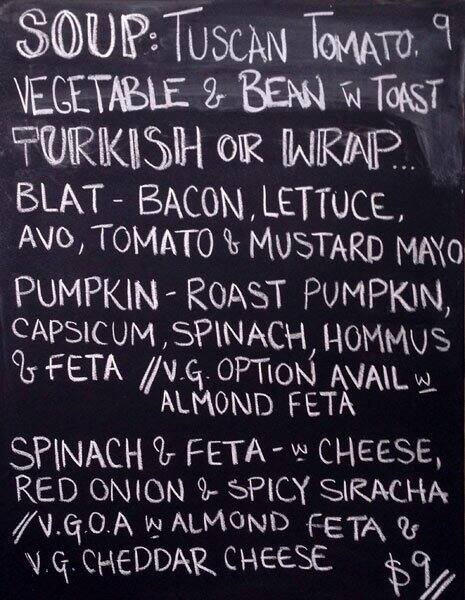 SOUP: TUSCAN TOMATO. 9
VEGETABLE & BEAN W TOAST
TURKISH OR WRAP...
BLAT - BACON, LETTUCE,
AVO, TOMATO & MUSTARD MAYO
PUMPKIN - ROAST PUMPKIN,
CAPSICUM, SPINACH, HOMMUS
& FETA //V.G. OPTION AVAIL W
ALMOND FETA
SPINACH & FETA - W CHEESE,
RED ONION & SPICY SIRACHA
//V.G.O.A W ALMOND FETA &
V.G. CHEDDAR CHEESE
$9//